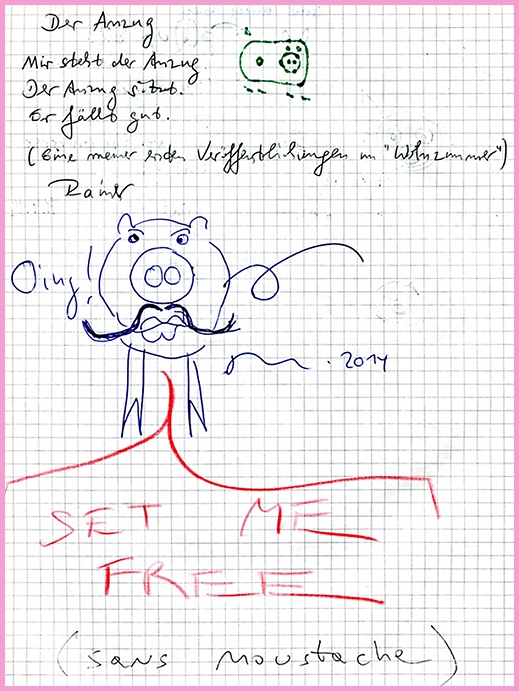 Der Anzug
Mir steht der Anzug
Der Anzug sitzt.
Er fällt gut.
(Eine meiner ersten Veröffentlichungen im "Wohnzimmer")
Rainer
Oing!
. 2014
SET ME
FREE
(sans moustache)